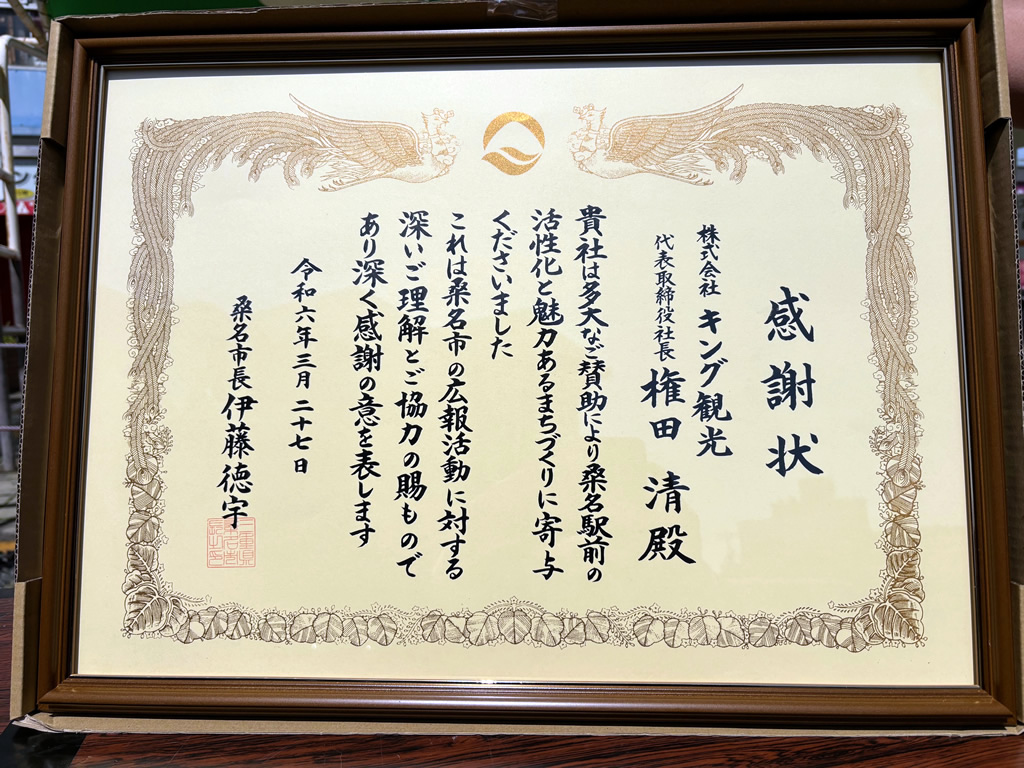 感謝状
株式会社 キング観光
代表取締役社長 権田 清 殿
貴社は多大なご賛助により桑名駅前の
活性化と魅力あるまちづくりに寄与
くださいました
これは桑名市の広報活動に対する
深いご理解とご協力の賜もので
あり深く感謝の意を表します
令和六年三月二十七日
桑名市長 伊藤徳宇